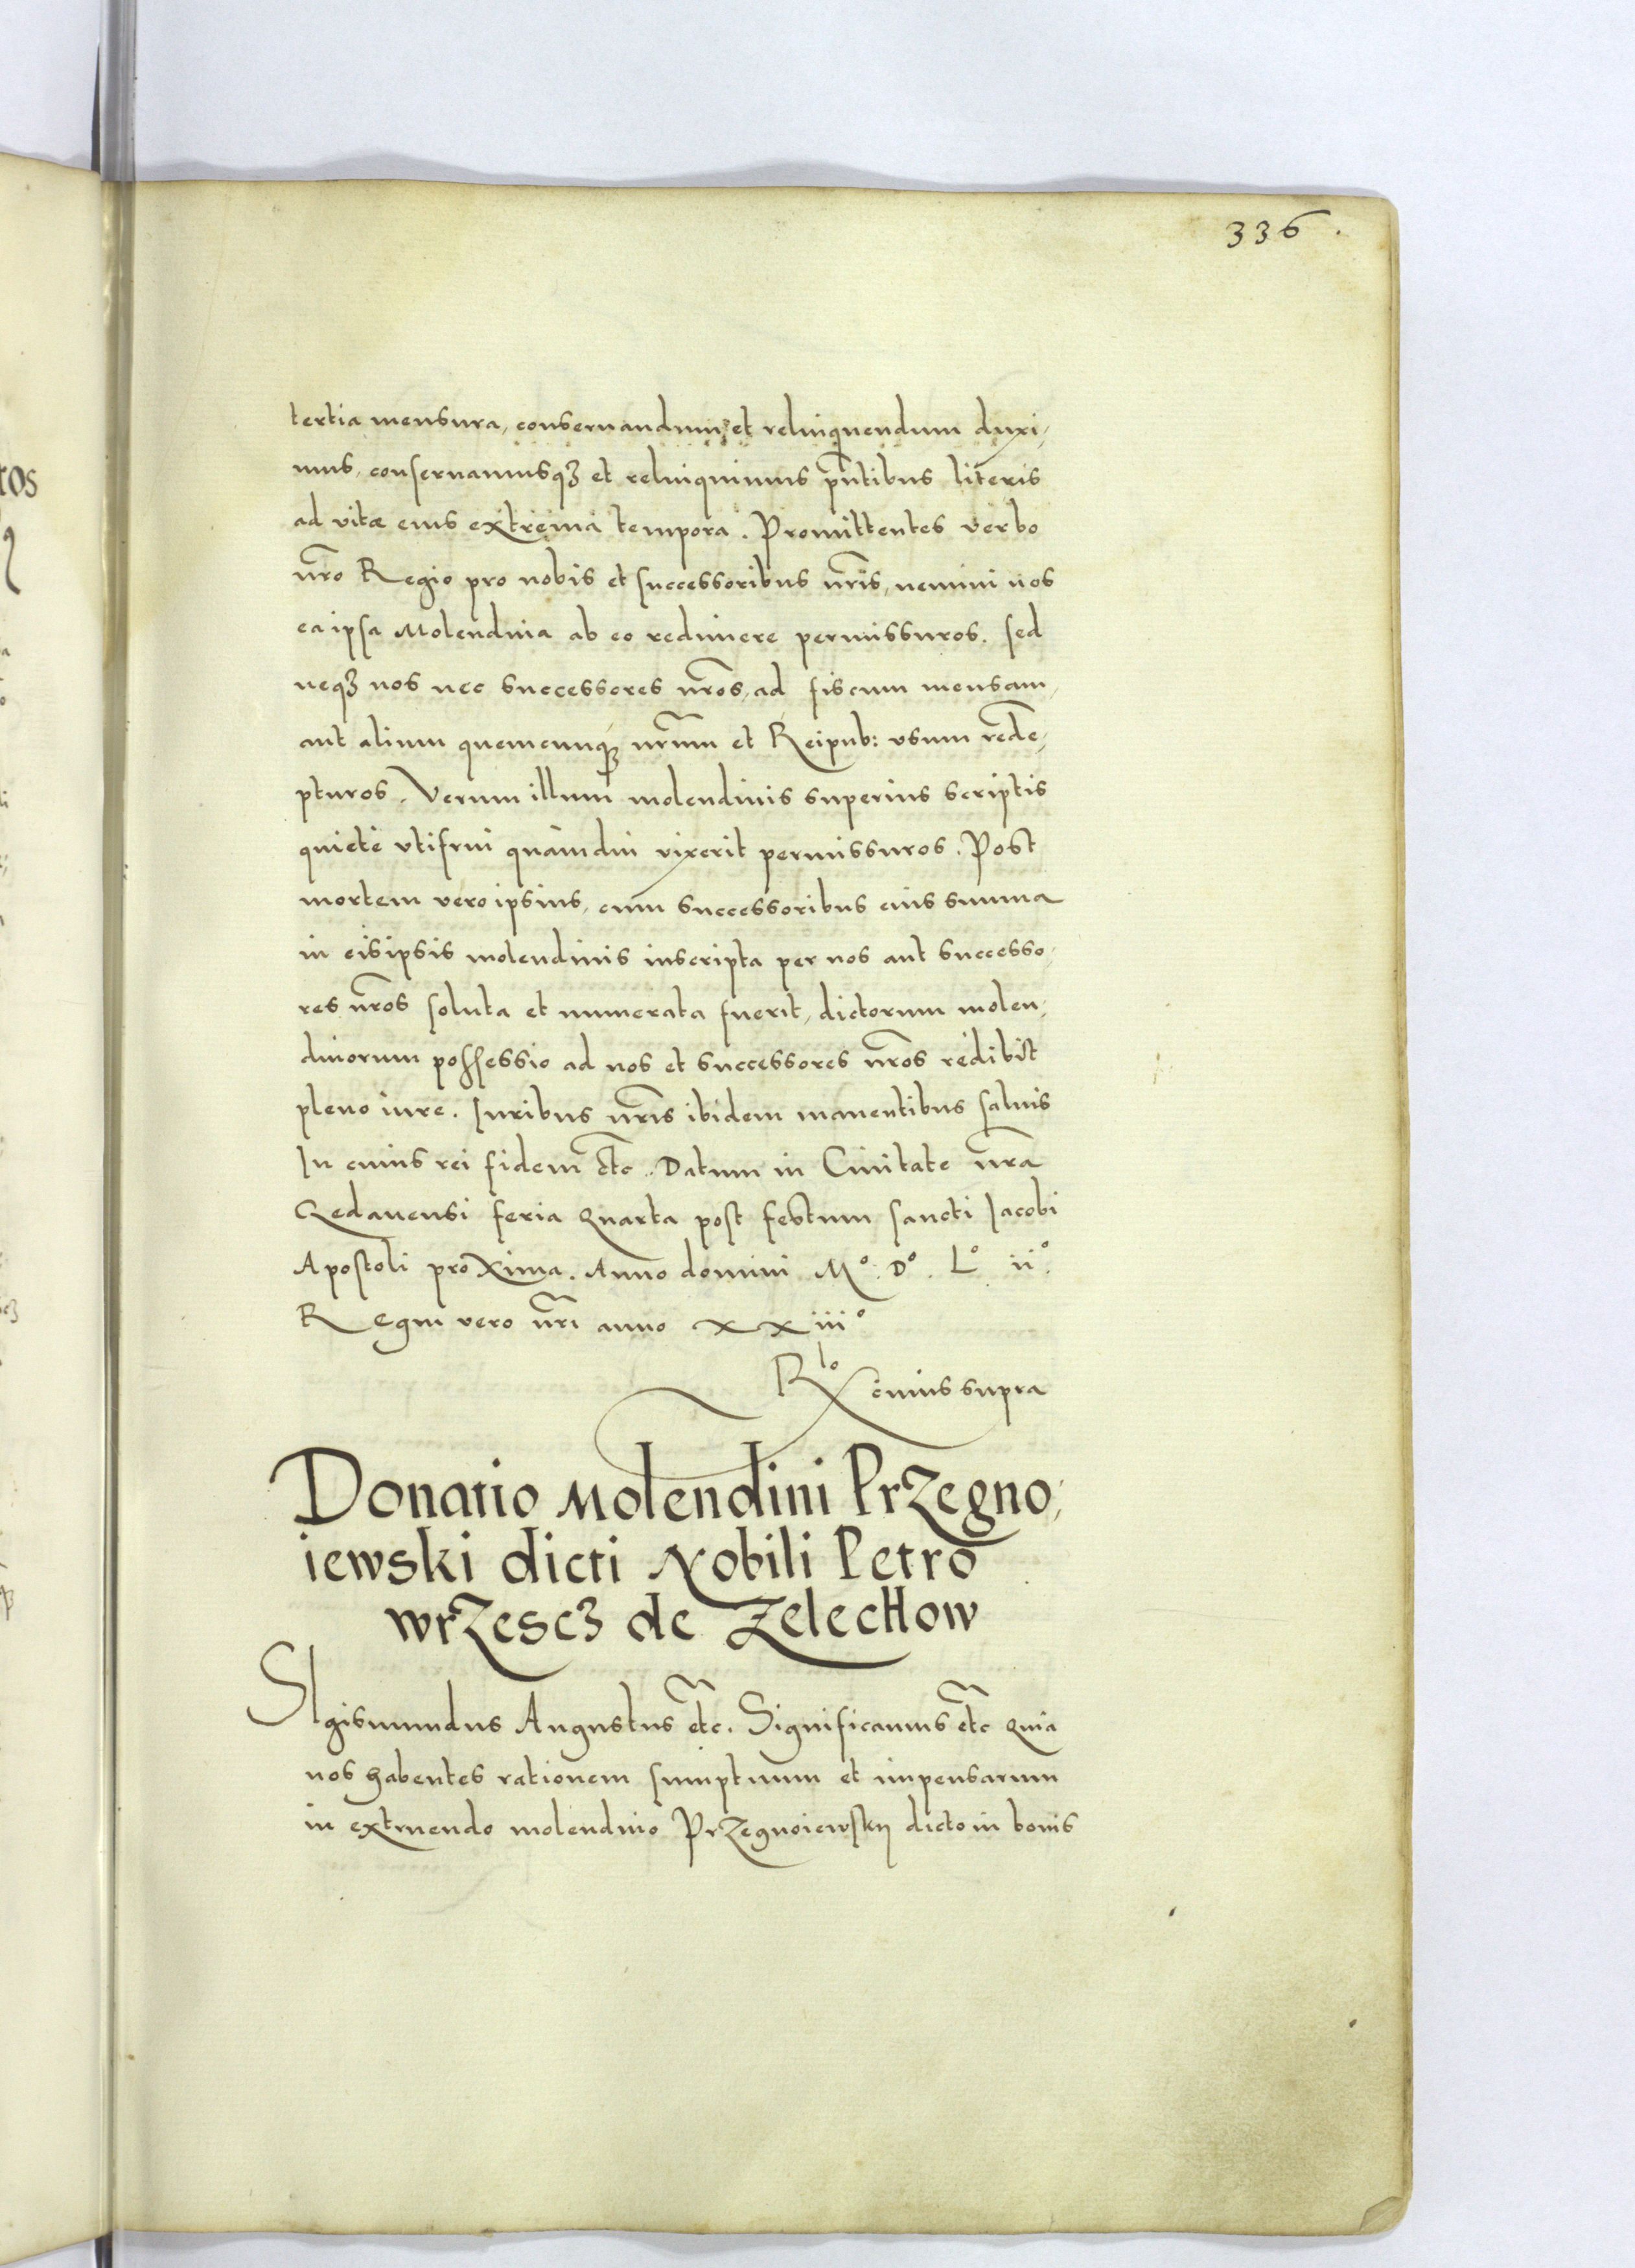 336.
tertia mensura, conservandum et relinquendum duxi,
mus, conservamusqȝ et relinquimus pñtibus literis
ad vitæ eius extrema tempora. Promittentes verbo
nr̃o Regio pro nobis et successoribus nr̃is, nemini nos
ea ipsa Molendina ab eo redimere permissuros. sed
neqȝ nos nec successores nr̃os, ad fiscum mensam,
aut alium quemcunqȝ nr̃um et Reipub: usum rede,
pturos. Verum illum molendinis superius scriptis
quietè utifrui quàmdiu vixerit permissuros. Post
mortem vero ipsius, cum successoribus eius summa
in eisipsis molendinis inscripta per nos aut successo,
res nr̃os soluta et numerata fuerit, dictorum molen,
dinorum possessio ad nos et successores nr̃os redibit
pleno iure. Iuribus nr̃is ibidem manentibus salvis
In cuius rei fidem etc̃. Datum in Civitate nr̃a
Gedanensi feria quarta post festum sancti Iacobi
Apostoli proxima. Anno domini Mº. Dº. Lº iiº.
Regni vero nr̃i anno xxiiiº
Rlo cuius supra
Donatio Molendini Przegno,
iewski dicti Nobili Petro
wrzescȝ de Zelechow
SIgismundus Augustus etc̃. Significamus etc̃ quia
nos habentes rationem sumptuum et impensarum
in extruendo molendino Przegnoiewsky dicto in bonis
tos